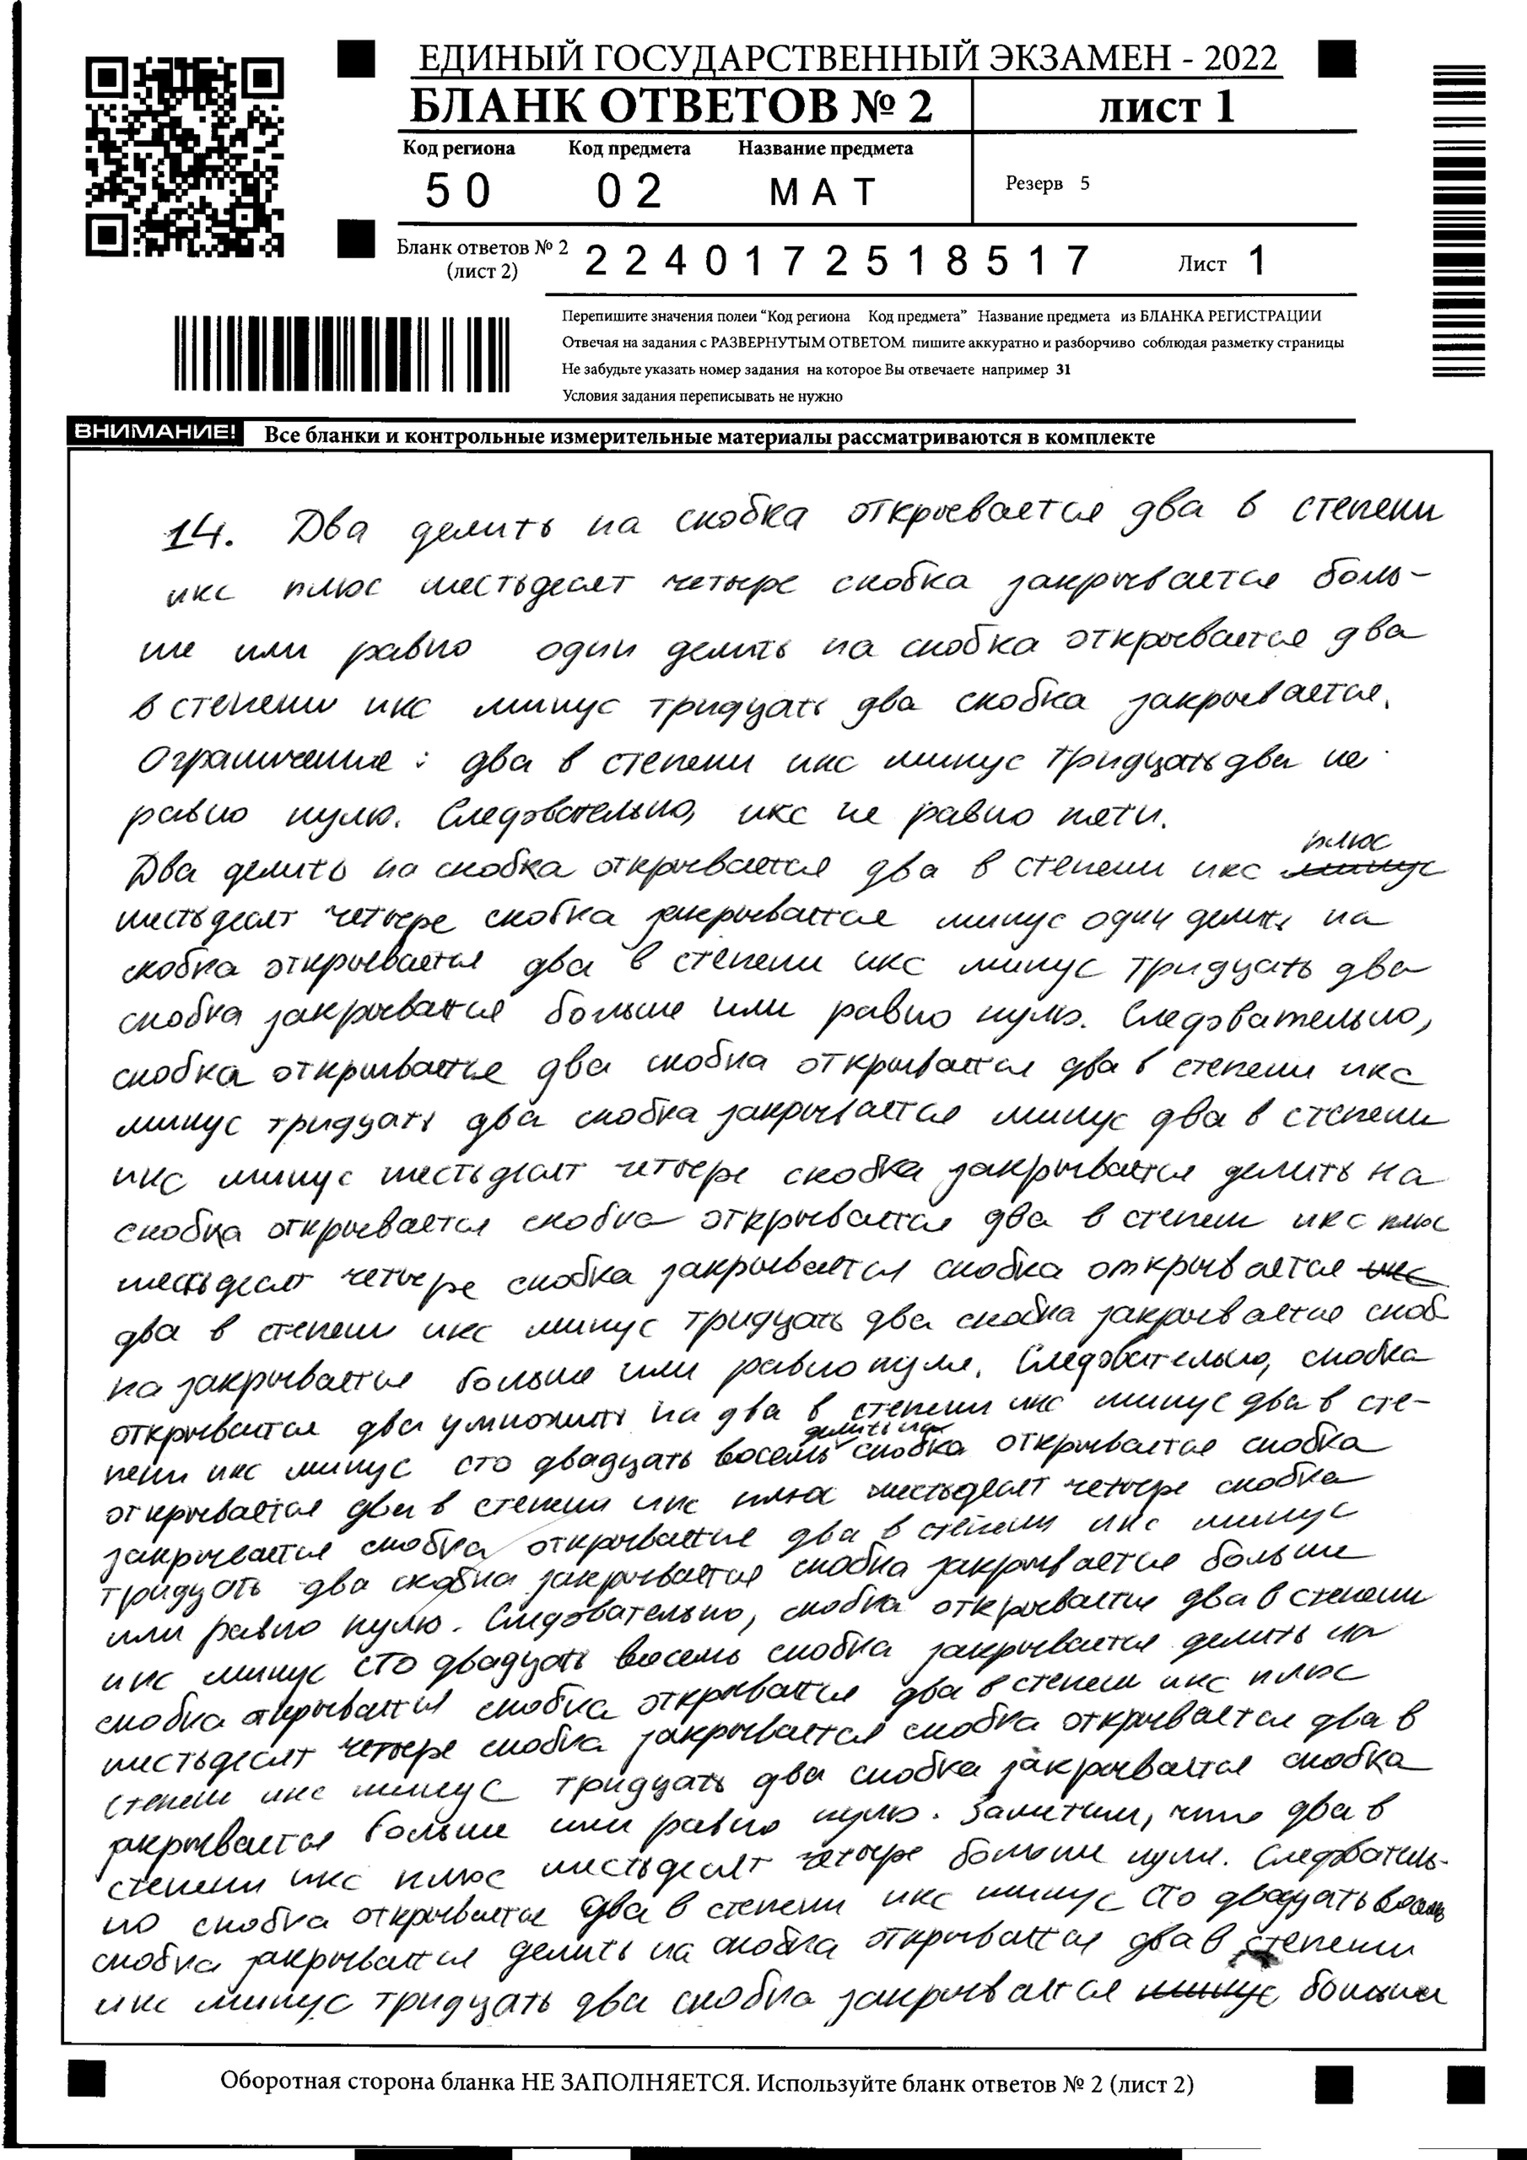 ЕДИНЫЙ ГОСУДАРСТВЕННЫЙ ЭКЗАМЕН - 2022
БЛАНК ОТВЕТОВ № 2
лист 1
Код региона Код предмета Название предмета
50 02 МАТ
Резерв 5
Бланк ответов № 2
(лист 2)
2240172518517
Лист 1
Перепишите значения полеи “Код региона Код предмета” Название предмета из БЛАНКА РЕГИСТРАЦИИ
Отвечая на задания с РАЗВЕРНУТЫМ ОТВЕТОМ пишите аккуратно и разборчиво соблюдая разметку страницы
Не забудьте указать номер задания на которое Вы отвечаете например 31
Условия задания переписывать не нужно
ВНИМАНИЕ! Все бланки и контрольные измерительные материалы рассматриваются в комплекте
14. Два делить на скобка открывается два в степени
икс плюс шестьдесят четыре скобка закрывается боль-
ше или равно один делить на скобка открывается два
в степени икс минус тридцать два скобка закрывается.
Ограничение: два в степени икс минус тридцать два не
равно нулю. Следовательно, икс не равно пяти.
плюс
Два делить на скобка открывается два в степени икс минус
шестьдесят четыре скобка закрывается минус один делить на
скобка открывается два в степени икс минус тридцать два
скобка закрывается больше или равно нулю. Следовательно,
скобка открывается два скобка открывается два в степени икс
минус тридцать два скобка закрывается минус два в степени
икс минус шестьдесят четыре скобка закрывается делить на
скобка открывается скобка открывается два в степени икс плюс
шестьдесят четыре скобка закрывается скобка открывается икс
два в степени икс минус тридцать два скобка закрывается скоб
ка закрывается больше или равно нуля. Следовательно, скобка
открывается два умножить на два в степени икс минус два в сте-
делить на
пени икс минус сто двадцать восемь скобка открывается скобка
открывается два в степени икс плюс шестьдесят четыре скобка
закрывается скобка открывается два в степени икс минус
тридцать два скобка закрывается скобка закрывается больше
или равно нулю. Следовательно, скобка открывается два в степени
икс минус сто двадцать восемь скобка закрывается делить на
скобка открывается скобка открывается два в степени икс плюс
шестьдесят четыре скобка закрывается скобка открывается два в
степени икс минус тридцать два скобка закрывается скобка
закрывается больше или равно нулю. Заметим, что два в
степени икс плюс шестьдесят четыре больше нуля. Следователь-
но скобка открывается два в степени икс минус сто двадцать восемь
скобка закрывается делить на скобка открывается два в степени
икс минус тридцать два скобка закрывается минус больше
Оборотная сторона бланка НЕ ЗАПОЛНЯЕТСЯ. Используйте бланк ответов № 2 (лист 2)